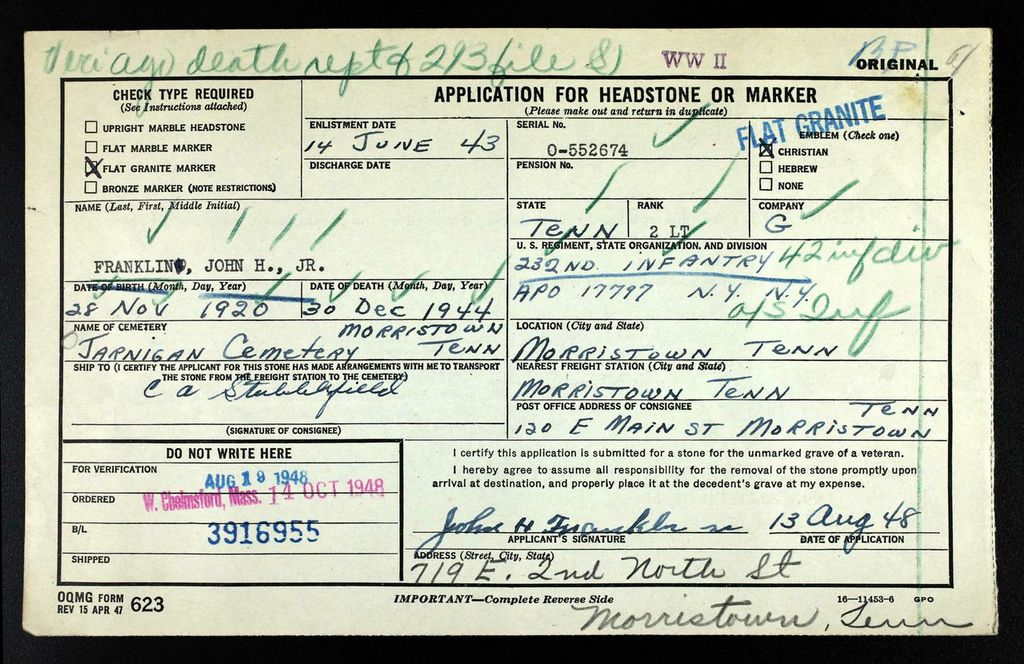 death rept of 293 file
WW II
ORIGINAL
CHECK TYPE REQUIRED
(See Instructions attached)
UPRIGHT MARBLE HEADSTONE
FLAT MARBLE MARKER
FLAT GRANITE MARKER
BRONZE MARKER (NOTE RESTRICTIONS)
APPLICATION FOR HEADSTONE OR MARKER
(Please make out and return in duplicate)
ENLISTMENT DATE
14 JUNE 43
DISCHARGE DATE
SERIAL No.
O-552674
PENSION No.
FLAT GRANITE
EMBLEM (Check one)
CHRISTIAN
HEBREW
NONE
NAME (Last, First, Middle Initial)
FRANKLIN, JOHN H., JR.
STATE
TENN
RANK
2 LT
COMPANY
G
U. S. REGIMENT, STATE ORGANIZATION, AND DIVISION
232ND INFANTRY 42 inf div
APO 17797 N.Y. N.Y.
a/s Inf
DATE OF BIRTH (Month, Day, Year)
28 NOV 1920
DATE OF DEATH (Month, Day, Year)
30 Dec 1944
NAME OF CEMETERY
MORRISTOWN
JARNIGAN Cemetery TENN
LOCATION (City and State)
MORRISTOWN TENN
SHIP TO (I CERTIFY THE APPLICANT FOR THIS STONE HAS MADE ARRANGEMENTS WITH ME TO TRANSPORT
THE STONE FROM THE FREIGHT STATION TO THE CEMETERY)
C A Stubblefield
(SIGNATURE OF CONSIGNEE)
NEAREST FREIGHT STATION (City and State)
MORRISTOWN TENN
POST OFFICE ADDRESS OF CONSIGNEE
TENN
120 E MAIN ST MORRISTOWN
DO NOT WRITE HERE
FOR VERIFICATION
AUG 19 1948
ORDERED
W. Chelmsford, Mass. 14 OCT 1948
B/L
3916955
SHIPPED
I certify this application is submitted for a stone for the unmarked grave of a veteran.
I hereby agree to assume all responsibility for the removal of the stone promptly upon
arrival at destination, and properly place it at the decedent's grave at my expense.
John H Franklin 13 Aug 48
APPLICANT'S SIGNATURE
DATE OF APPLICATION
ADDRESS (Street, City, State)
719 E. 2nd North St
Morristown, Tenn
OQMG FORM
REV 15 APR 47 623
IMPORTANT—Complete Reverse Side
16—11453-6 GPO